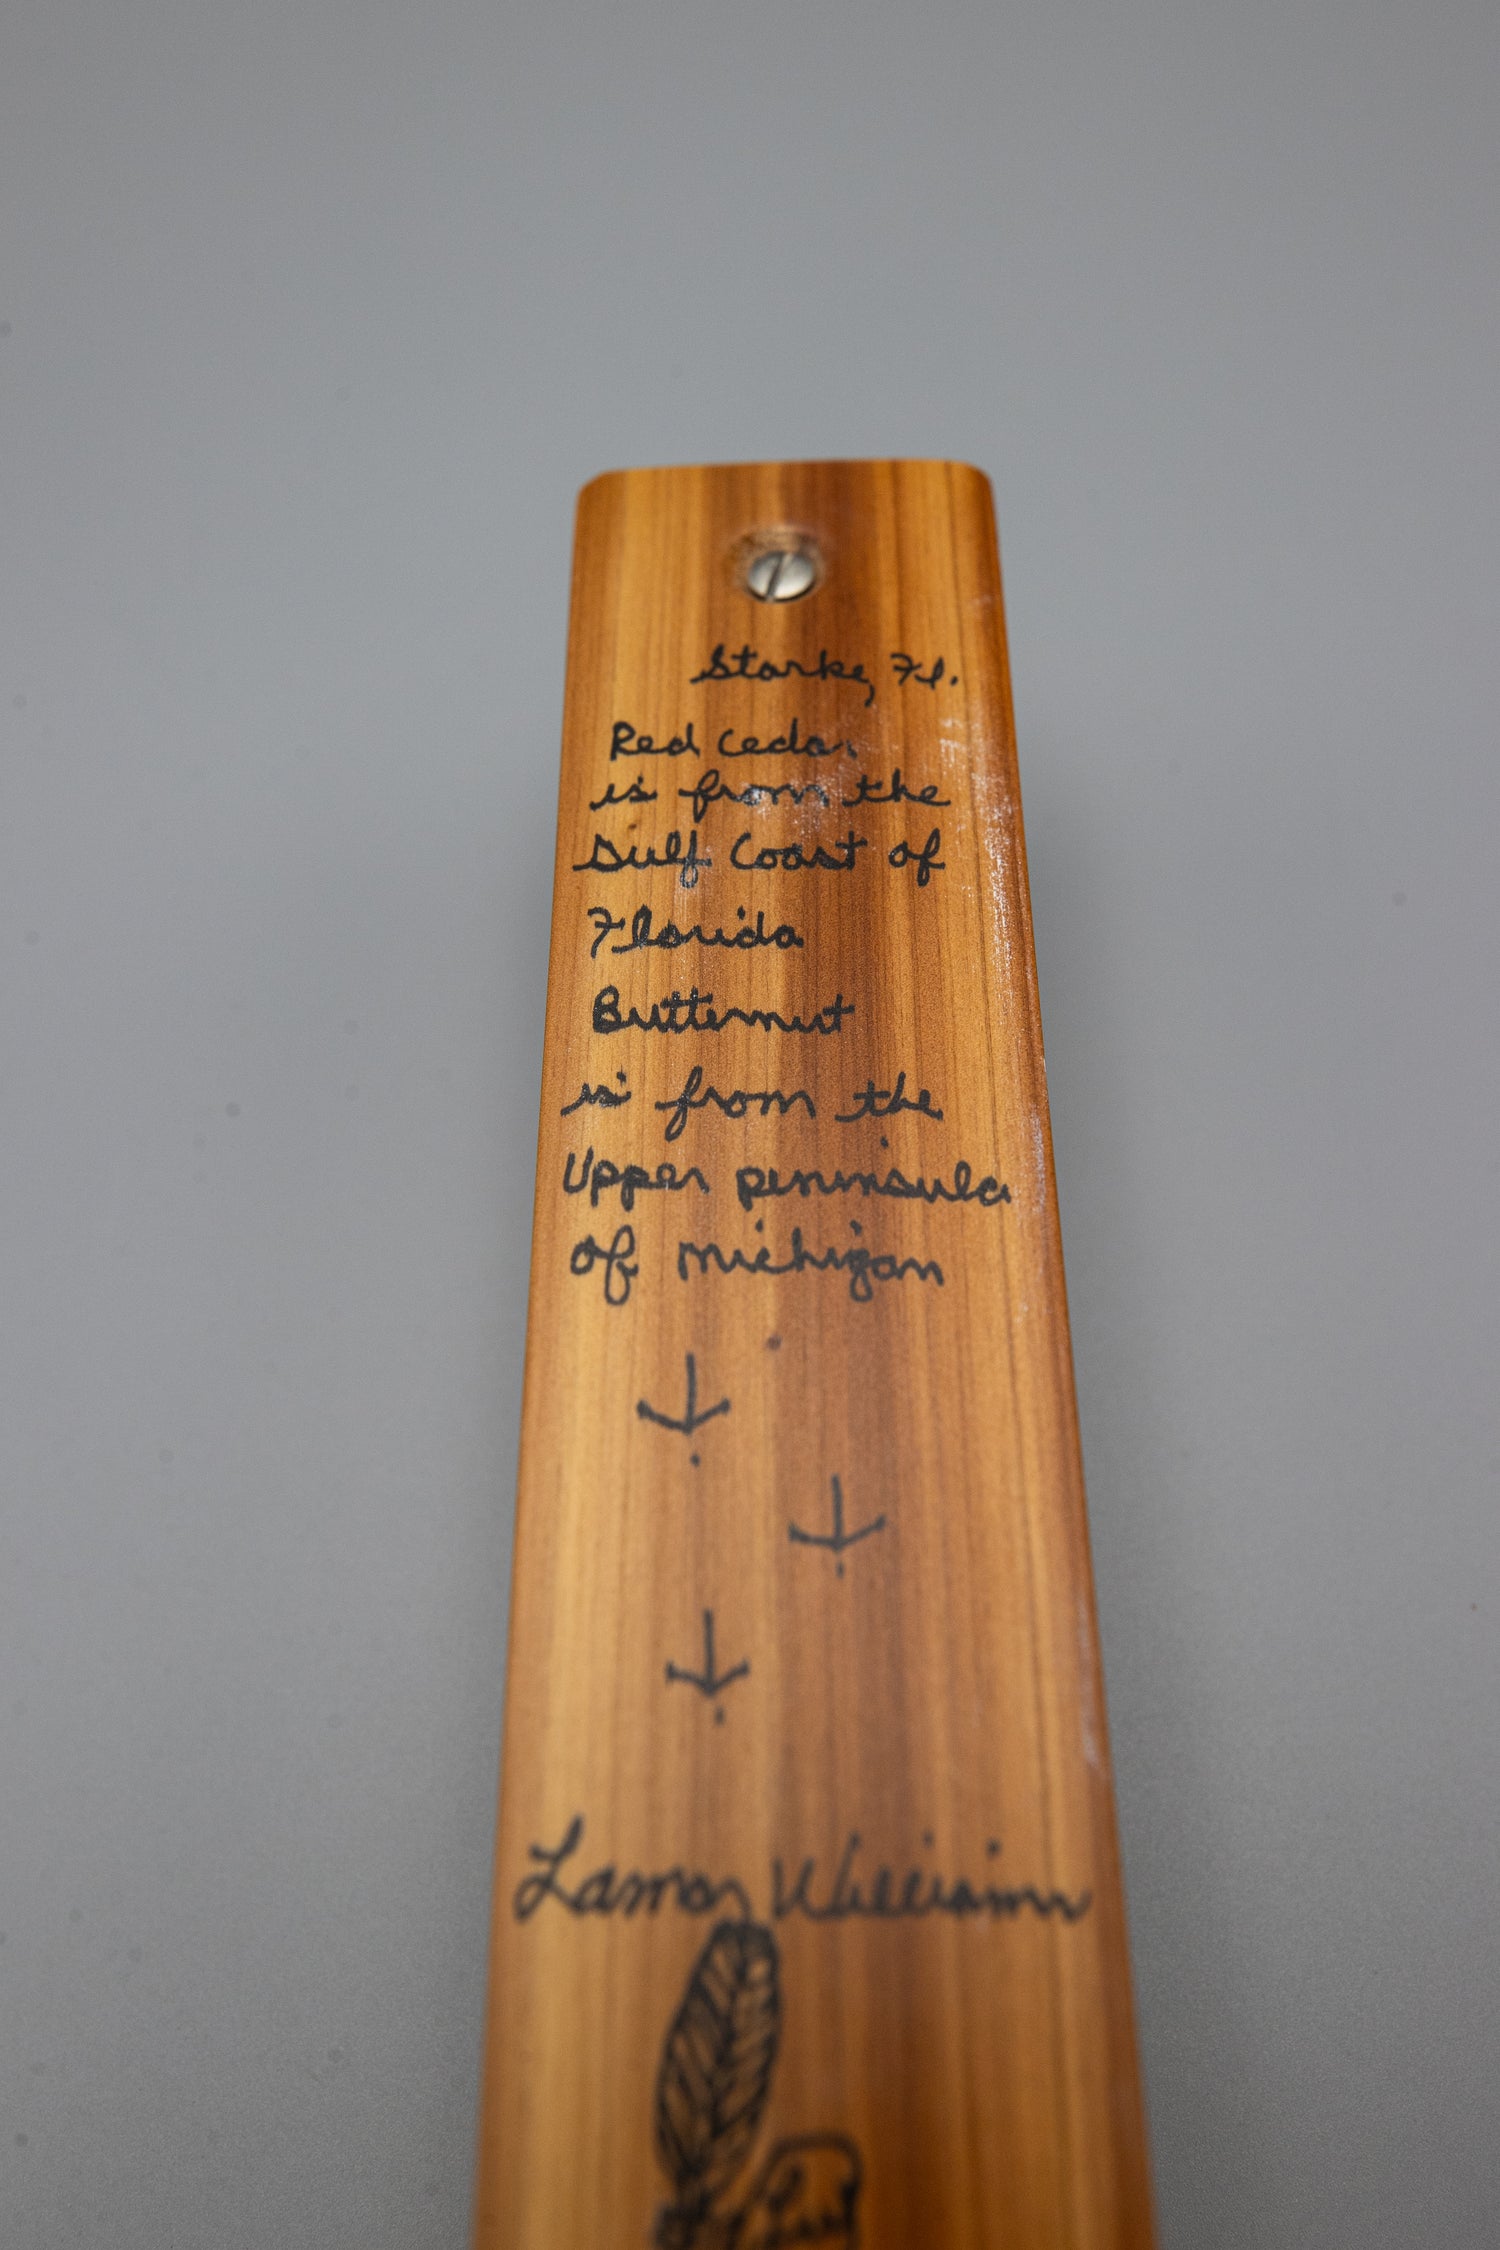 Starke, Fl.
Red Cedar
is from the
Gulf Coast of
Florida
Butternut
is from the
Upper peninsula
of Michigan
Lamar Williams